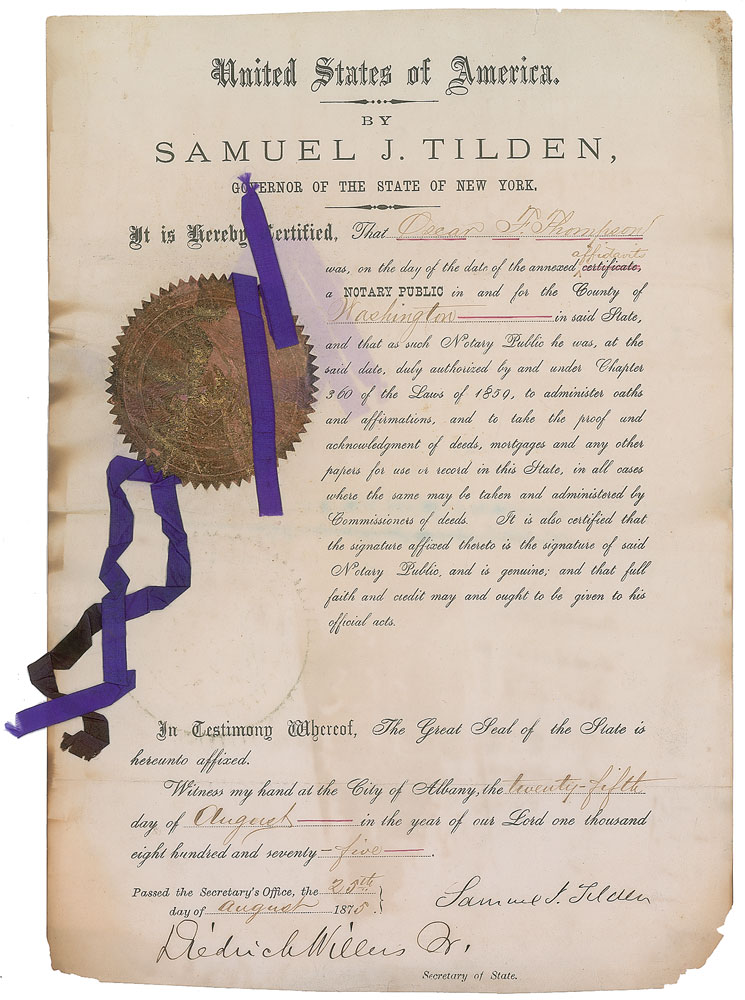 United States of America.
BY
SAMUEL J. TILDEN,
GOVERNOR OF THE STATE OF NEW YORK.
It is Hereby Certified, That Oscar F. Thompson
affidavit
was, on the day of the date of the annexed certificate,
a NOTARY PUBLIC in and for the County of
Washington in said State,
and that as such Notary Public he was, at the
said date, duly authorized by and under Chapter
360 of the Laws of 1859, to administer oaths
and affirmations, and to take the proof and
acknowledgment of deeds, mortgages and any other
papers for use or record in this State, in all cases
where the same may be taken and administered by
Commissioners of deeds. It is also certified that
the signature affixed thereto is the signature of said
Notary Public, and is genuine; and that full
faith and credit may and ought to be given to his
official acts.
In Testimony Whereof, The Great Seal of the State is
hereunto affixed.
Witness my hand at the City of Albany, the twenty-fifth
day of August in the year of our Lord one thousand
eight hundred and seventy-five.
Passed the Secretary's Office, the 25th
day of August 1875.
Samuel J. Tilden
Diedrich Willers Jr.
Secretary of State.